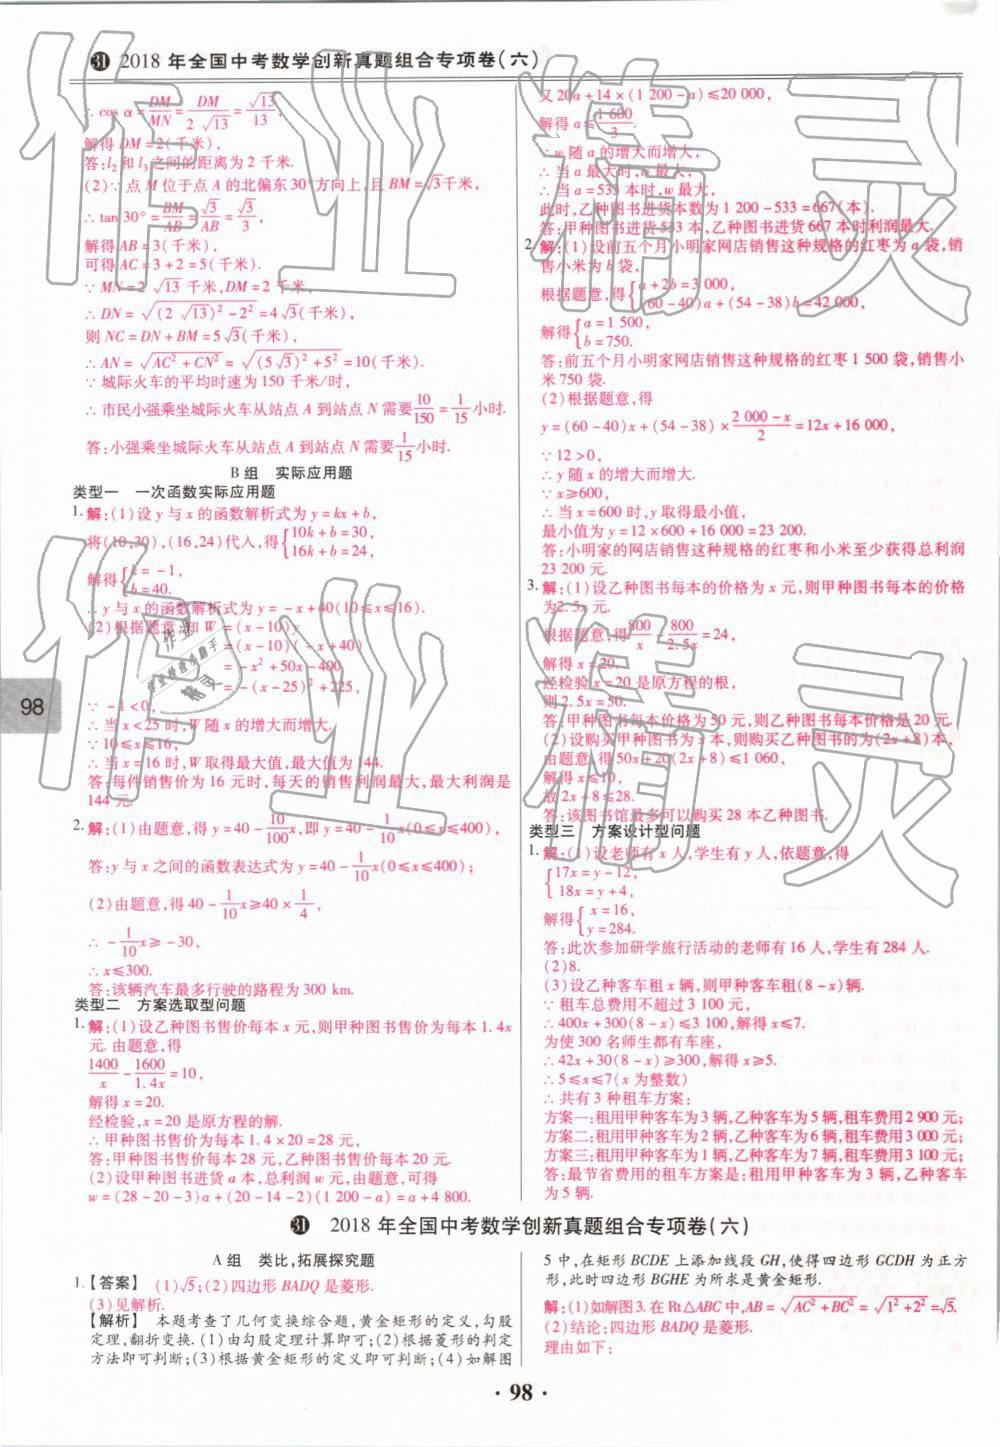 ㉛ 2018 年全国中考数学创新真题组合专项卷(六)
∴cos α=DM/MN=DM/(2√13)=√13/13,
解得 DM=2(千米),
答:l₂和 l₃之间的距离为 2 千米.
(2)∵点 M 位于点 A 的北偏东30°方向上,且 BM=√3千米,
∴tan 30°=BM/AB=√3/AB=√3/3,
解得 AB=3(千米),
可得 AC=3+2=5(千米).
∵MN=2√13千米,DM=2千米,
∴DN=√((2√13)²-2²)=4√3(千米),
则 NC=DN+BM=5√3(千米),
∴AN=√(AC²+CN²)=√((5√3)²+5²)=10(千米).
∵城际火车的平均时速为 150 千米/时,
∴市民小强乘坐城际火车从站点 A 到站点 N 需要10/150=1/15小时.
答:小强乘坐城际火车从站点 A 到站点 N 需要1/15小时.
B 组 实际应用题
类型一 一次函数实际应用题
1.解:(1)设 y 与 x 的函数解析式为 y=kx+b,
将(10,30),(16,24)代入,得{10k+b=30, 16k+b=24,
解得{k=-1, b=40.
∴y 与 x 的函数解析式为 y=-x+40(10≤x≤16).
(2)根据题意,知 W=(x-10)y
=(x-10)(-x+40)
=-x²+50x-400
=-(x-25)²+225,
∵-1<0,
∴当 x<25 时,W 随 x 的增大而增大.
∵10≤x≤16,
∴当 x=16 时,W 取得最大值,最大值为 144.
答:每件销售价为 16 元时,每天的销售利润最大,最大利润是
144 元.
2.解:(1)由题意,得 y=40-10/100x,即 y=40-1/10x(0≤x≤400),
答:y 与 x 之间的函数表达式为 y=40-1/10x(0≤x≤400);
(2)由题意,得 40-1/10x≥40×1/4,
∴-1/10x≥-30,
∴x≤300.
答:该辆汽车最多行驶的路程为 300 km.
类型二 方案选取型问题
1.解:(1)设乙种图书售价每本 x 元,则甲种图书售价为每本 1.4x
元.由题意,得
1400/x-1600/1.4x=10,
解得 x=20.
经检验,x=20 是原方程的解.
∴甲种图书售价为每本 1.4×20=28 元,
答:甲种图书售价每本 28 元,乙种图书售价每本 20 元.
(2)设甲种图书进货 a 本,总利润 w 元,由题意,可得
w=(28-20-3)a+(20-14-2)(1 200-a)=a+4 800.
又 20a+14×(1 200-a)≤20 000,
解得 a≤1 600/3.
∴w 随 a 的增大而增大,
∴当 a 最大时,w 最大,
∴当 a=533 本时,w 最大,
此时,乙种图书进货本数为 1 200-533=667(本),
答:甲种图书进货 533 本,乙种图书进货 667 本时利润最大.
2.解:(1)设前五个月小明家网店销售这种规格的红枣为 a 袋,销
售小米为 b 袋,
根据题意,得{a+2b=3 000, (60-40)a+(54-38)b=42 000,
解得{a=1 500, b=750.
答:前五个月小明家网店销售这种规格的红枣 1 500 袋,销售小
米 750 袋.
(2)根据题意,得
y=(60-40)x+(54-38)×(2 000-x)/2=12x+16 000,
∵12>0,
∴y 随 x 的增大而增大.
∵x≥600,
∴当 x=600 时,y 取得最小值,
最小值为 y=12×600+16 000=23 200.
答:小明家的网店销售这种规格的红枣和小米至少获得总利润
23 200 元.
3.解:(1)设乙种图书每本的价格为 x 元,则甲种图书每本的价格
为2.5x 元.
根据题意,得800/x-800/2.5x=24,
解得 x=20,
经检验 x=20 是原方程的根,
则 2.5x=50.
答:甲种图书每本价格为 50 元,则乙种图书每本价格是 20 元.
(2)设购买甲种图书为 x 本,则购买乙种图书的为(2x+8)本,
由题意,得 50x+20(2x+8)≤1 060,
解得 x≤10,
故 2x+8≤28.
答:该图书馆最多可以购买 28 本乙种图书.
类型三 方案设计型问题
1.解:(1)设老师有 x 人,学生有 y 人,依题意,得
{17x=y-12, 18x=y+4,
解得{x=16, y=284.
答:此次参加研学旅行活动的老师有 16 人,学生有 284 人.
(2)8.
(3)设乙种客车租 x 辆,则甲种客车租(8-x)辆.
∵租车总费用不超过 3 100 元,
∴400x+300(8-x)≤3 100,解得 x≤7.
为使 300 名师生都有车座,
∴42x+30(8-x)≥300,解得 x≥5.
∴5≤x≤7(x 为整数)
∴共有 3 种租车方案:
方案一:租用甲种客车为 3 辆,乙种客车为 5 辆,租车费用 2 900 元;
方案二:租用甲种客车为 2 辆,乙种客车为 6 辆,租车费用 3 000 元;
方案三:租用甲种客车为 1 辆,乙种客车为 7 辆,租车费用 3 100 元;
答:最节省费用的租车方案是:租用甲种客车为 3 辆,乙种客车
为 5 辆.
㉛ 2018 年全国中考数学创新真题组合专项卷(六)
A 组 类比,拓展探究题
1.【答案】 (1)√5;(2)四边形 BADQ 是菱形.
(3)见解析.
【解析】 本题考查了几何变换综合题,黄金矩形的定义,勾股
定理,翻折变换.(1)由勾股定理计算即可;(2)根据菱形的判定
方法即可判断;(3)根据黄金矩形的定义即可判断;(4)如解图
5 中,在矩形 BCDE 上添加线段 GH,使得四边形 GCDH 为正方
形,此时四边形 BGHE 为所求是黄金矩形.
解:(1)如解图 3.在 Rt△ABC 中,AB=√(AC²+BC²)=√(1²+2²)=√5.
(2)结论:四边形 BADQ 是菱形.
理由如下:
98
· 98 ·
作业精灵
作业精灵